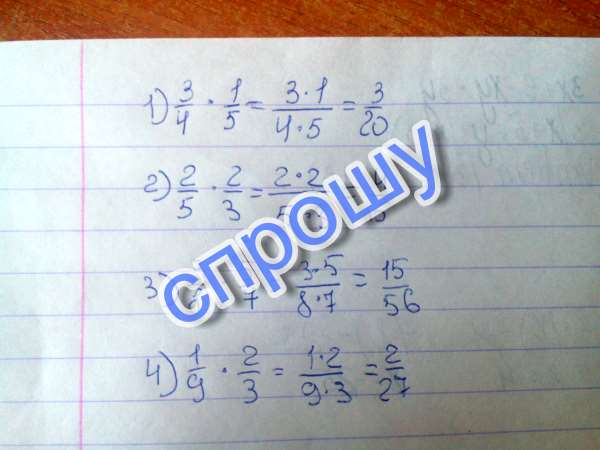 1) 3/4 · 1/5 = 3·1/4·5 = 3/20
2) 2/5 · 2/3 = 2·2/5
3) 7 3·5/8·7 = 15/56
4) 1/9 · 2/3 = 1·2/9·3 = 2/27
спрошу